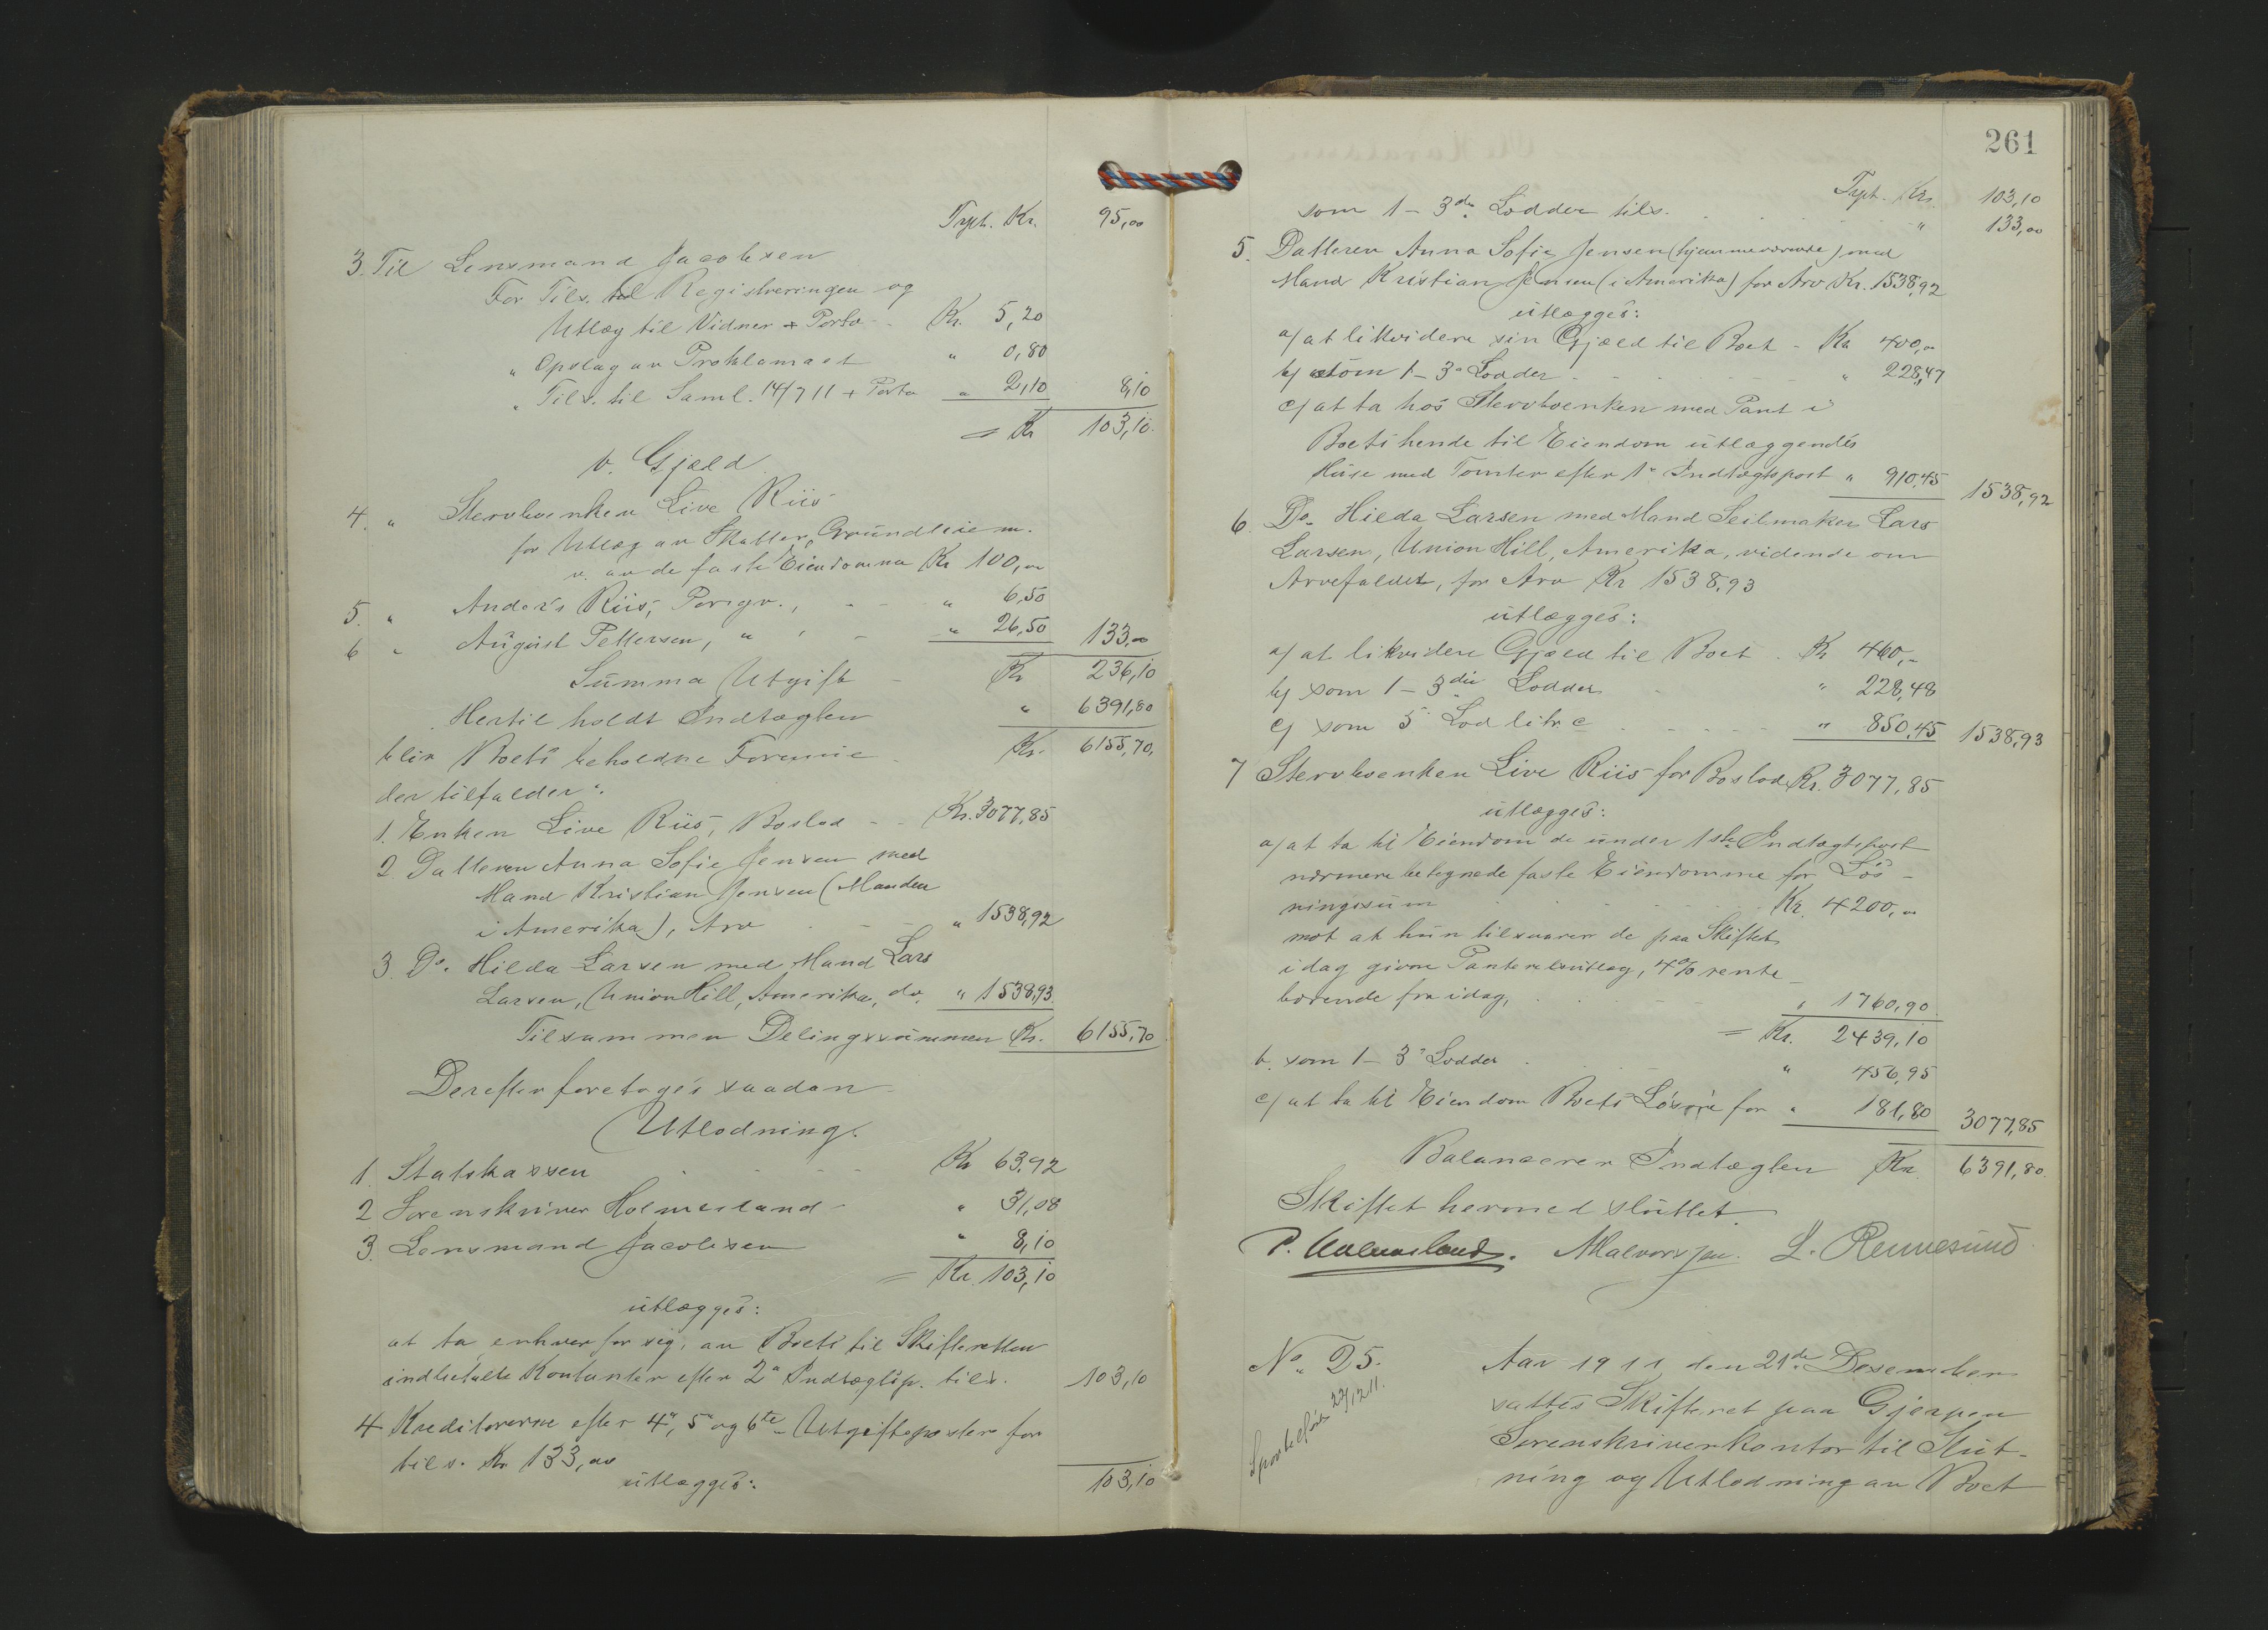 Trpt. Kr. 95,00
3. Til Lensmand Jacobsen
For Tils. til Registreringen og
Utlæg til Vidner + Porto - Kr. 5,20
" Opslag av Proklamaet " 0,80
" Tils. til Saml. 14/7 11 + Porto " 2,10 8,10
= Kr 103,10.
b. Gjæld.
4. " Stervboenken Live Riis
for Utlæg av Skatter, Grundleie m.
v. av de faste Eiendomme Kr 100,00
5. " Anders Riis, Porsgr., - - " 6,50
6 " August Pettersen, " , - " 26,50 133,00
Summa Utgift - Kr 236,10
Hertil holdt Indtægten " 6391,80
blir Boets beholdne Formue - Kr. 6155,70,
der tilfalder:
1. Enken Live Riis, Boslod - - Kr. 3077,85
2. Datteren Anna Sofie Jensen med
Mand Kristian Jensen (Manden
i Amerika), Arv - - " 1538,92
3. Do. Hilda Larsen med Mand Lars
Larsen, Union Hill, Amerika, do. " 1538,93.
Tilsammen Delingssummen Kr. 6155,70
Derefter foretoges saadan
Utlodning.
1. Statskassen - - - Kr 63,92
2 Sorenskriver Holmesland - " 31,08
3. Lensmand Jacobsen " 8,10
= Kr. 103,10
utlægges:
at ta enhver for sig, av Boets til Skifteretten
indbetalte Kontanter efter 2" Indtægtsp. tils. 103,10
4 Kreditorerne efter 4", 5" og 6te Utgiftsposter for
tils. Kr 133,00
utlægges: 103,10
261
Trpt. Kr. 103,10
som 1 - 3die Lodder tils. " 133,00
5. Datteren Anna Sofie Jensen (hjemmeværende) med
Mand Kristian Jensen (i Amerika) for Arv Kr. 1538,92
utlægges:
a/ at likvidere sin Gjæld til Boet - Kr 400,-
b/ som 1 - 3" Lodder - - - " 228,47
c/ at ta hos Stervboenken med Pant i
Boets hende til Eiendom utlæggendes
Huse med Tomter efter 1" Indtægtspost " 910,45 1538,92
6. Do. Hilda Larsen med Mand Seilmaker Lars
Larsen, Union Hill, Amerika, vidende om
Arvefaldet, for Arv Kr 1538,93
utlægges:
a/ at likvidere Gjæld til Boet . Kr 460,-
b/ som 1 - 3die Lodder - " 228,48
c/ som 5" Lod litr c - - - - " 850,45 1538,93
7 Stervboenken Live Riis for Boslod Kr. 3077,85
utlægges:
a/ at ta til Eiendom de under 1ste Indtægtspost
nærmere betegnede faste Eiendomme for Løs-
ningssum - - - Kr. 4200,00
mot at hun tilsvarer de paa Skiftet
idag givne Panterelsutlæg, 4% rente-
bærende fra idag, - - " 1760,90
= Kr. 2439,10
b. som 1 - 3" Lodder - - " 456,95
c/ at ta til Eiendom Boets Løsøre for " 181,80 3077,85
Balancerer Indtægten Kr 6391,80.
Skiftet hermed sluttet.
P. Holmesland. A Halvorsen. L. Rennesund
No. 25.
Sportelført 22/12 11.
Aar 1911 den 21de Desember
sattes Skifteret paa Gjerpen
Sorenskriverkontor til Slut-
ning og Utlodning av Boet